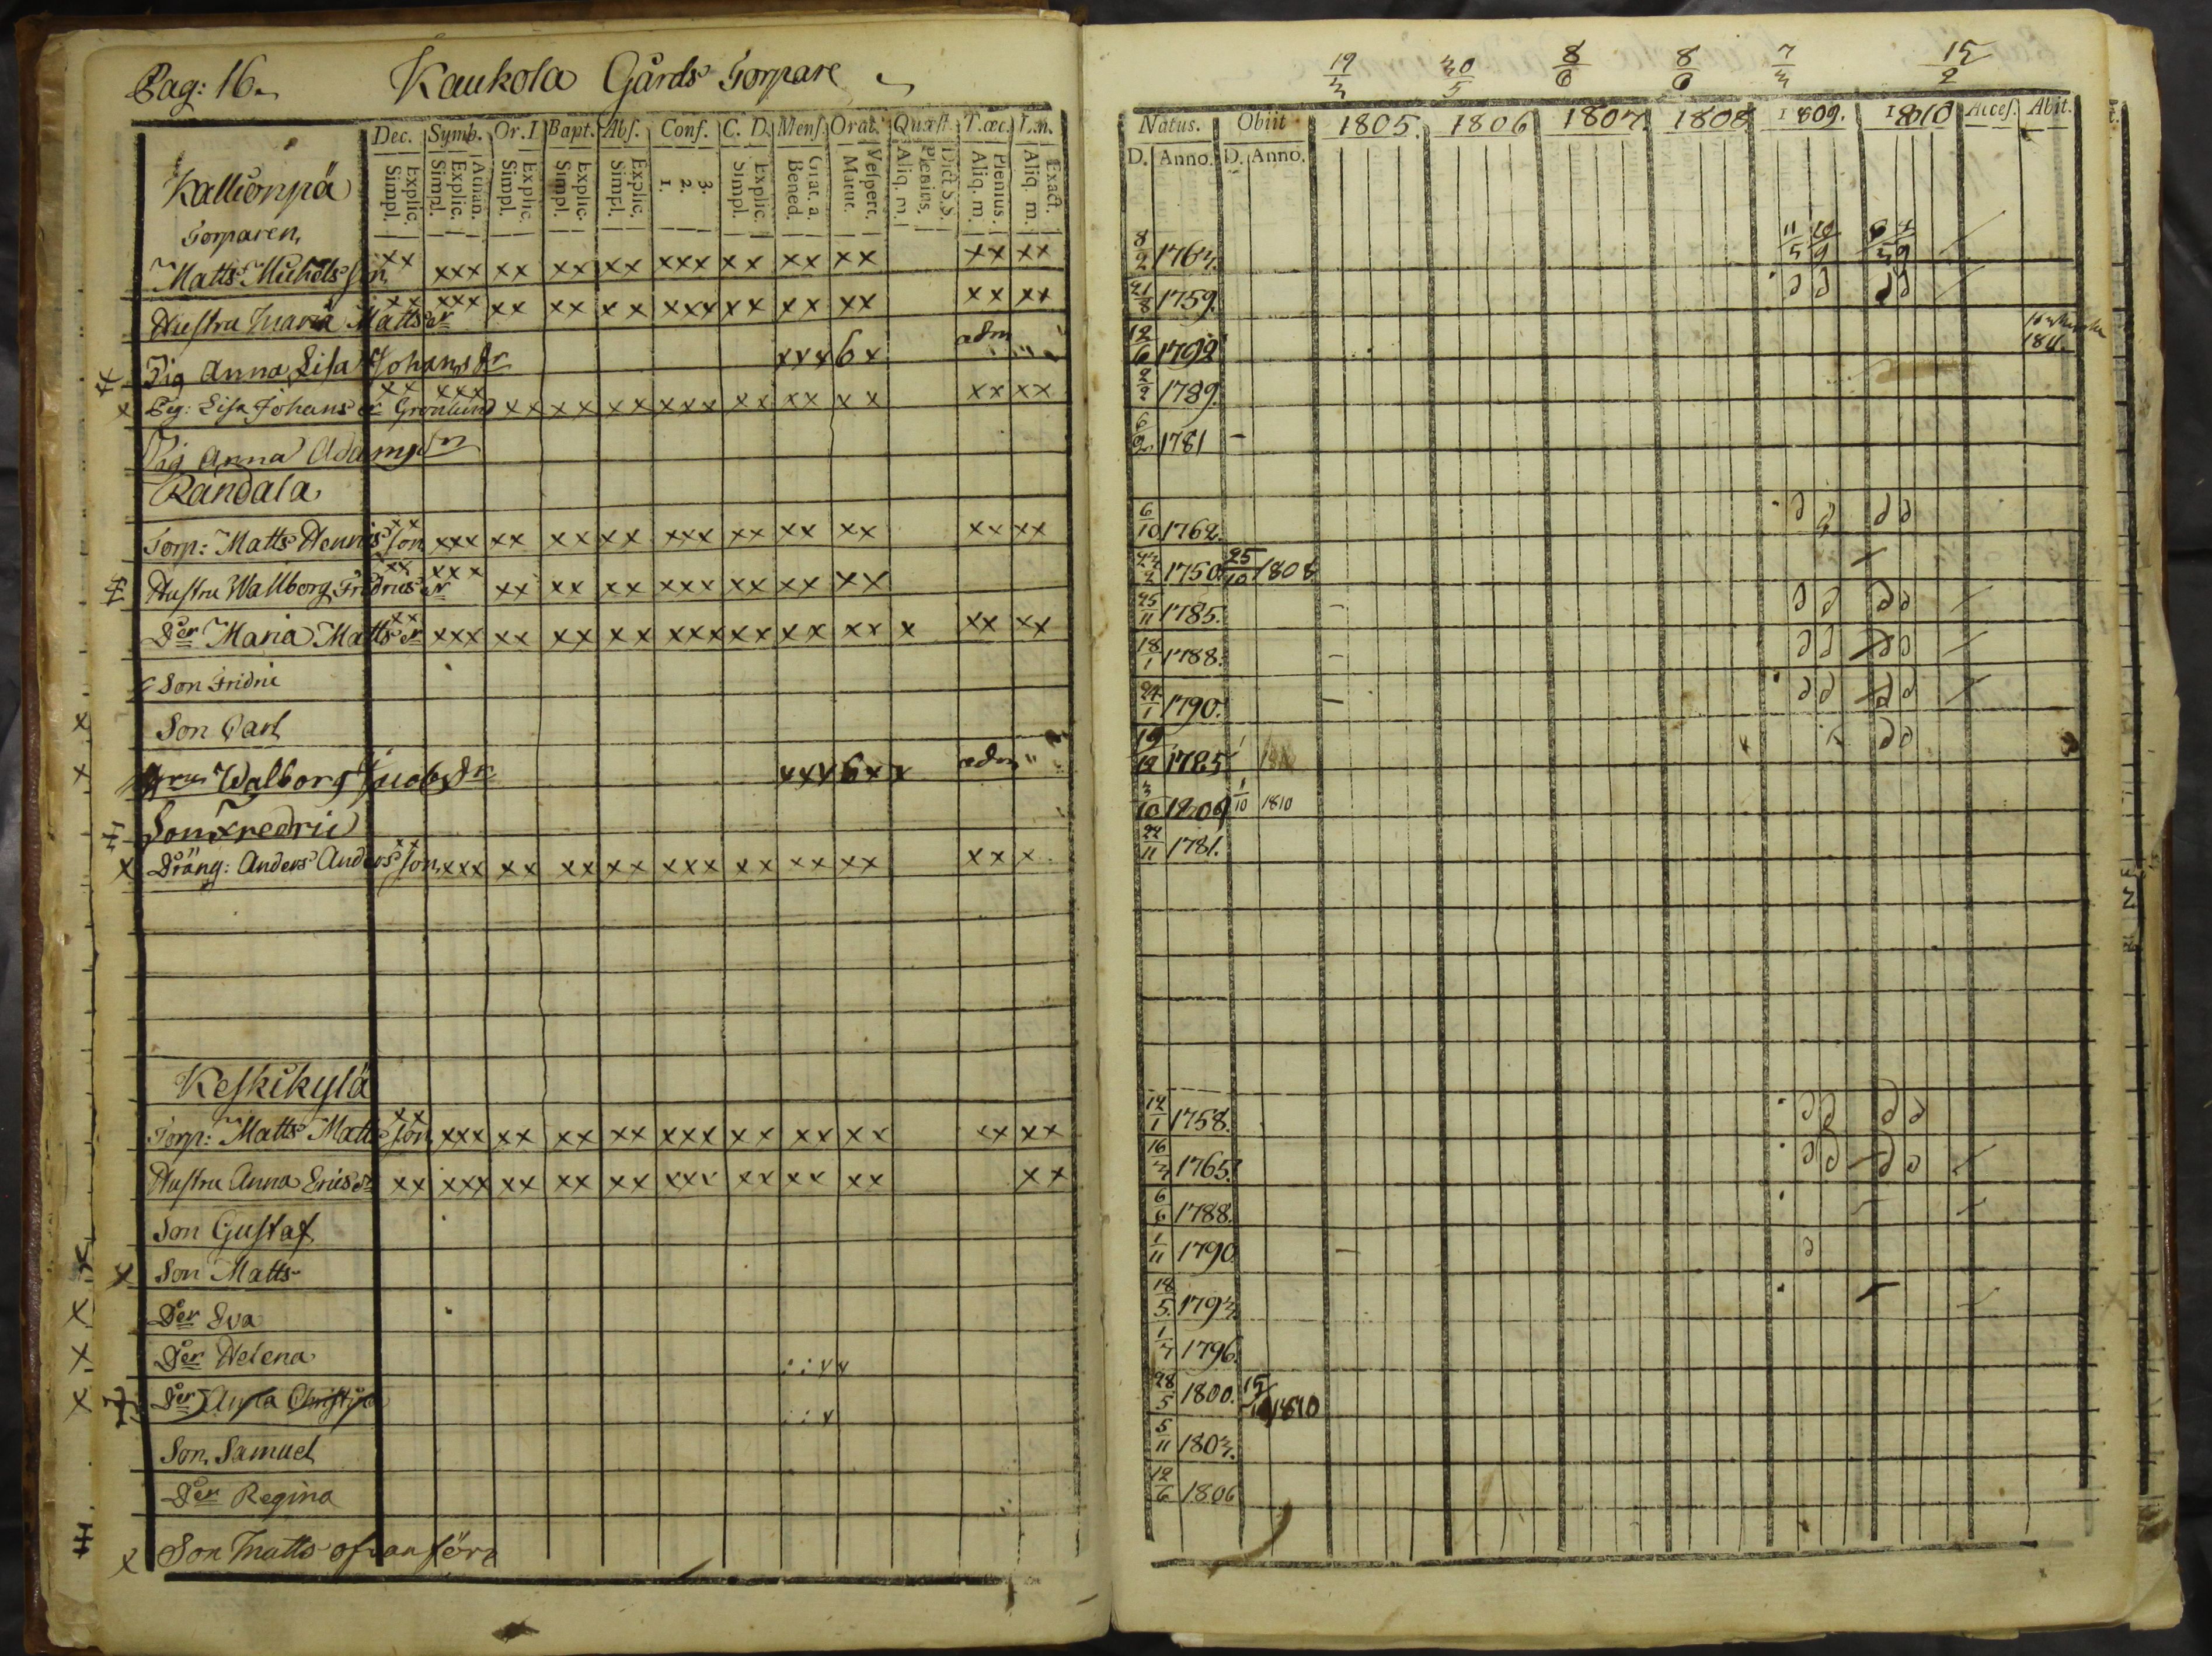 Pag: 16. Kaukola Gårds Torpare
Dec. Symb. Or. D. Bapt. Abs. Conf. C. D. Mens. Orat. Quæst. T. œc. L. n.
Explic. Simpl. Athan. Explic. Simpl. Explic. Simpl. Explic. Simpl. Explic. Simpl. 3. 2. 1. Explic. Simpl. Grat. a. Bened. Vespert. Matut. Dict S.S. Plenius. Aliq. m. Plenius. Aliq. m. Exact. Aliq. m.
Kallionpä
Torparen
Matts Michelsson xx xxx xx xx xx xxx xx xx xx xx xx
Hustru Maria Matts dr xx xxx xx xx xx xxx xx xx xx xx xx
Pig Anna Lisa Johans dr xxx6x adm
x Pig: Lisa Johans dr Grönlund xx xxx xx xx xx xxx xx xx xx xx xx
Pig Anna Adams dr
Randala
Torp: Matts Hennrisson xx xxx xx xx xx xxx xx xx xx xx xx
Hustru Wallborg Fridrics dr xx xxx xx xx xx xxx xx xx xx
Der Maria Matts dr xx xxx xx xx xx xxx xx xx xx x xx xx
Son Fridric
x Son Carl
x Walborg Jacobs dr xxx6xx adm
Son Fredric
x Dräng: Anders Andersson xx xxx xx xx xx xxx xx xx xx xx x
Keskikylä
Torp: Matts Mattsson xx xxx xx xx xx xxx xx xx xx xx xx
Hustru Anna Erics dr xx xxx xx xx xx xxx xx xx xx xx
Son Gustaf
x Son Matts
x Der Eva
x Der Helena
x Der Christina
Son Samuel
Der Regina
x Son Matts ofvanföre
19/3 30/5 8/6 8/6 7/3 15/2
Natus. Obiit 1805. 1806 1807. 1808 1809. 1810 Acces. Abit.
D. Anno. D. Anno.
8/2 1763.
21/8 1759.
12/6 1792
2/2 1789.
6/2 1781 –
6/10 1762.
1750. 25/10 1808
25/11 1785.
18/1 1788.
24/1 1790.
19/12 1785
3/10 1809 1/10 1810
22/11 1781.
12/1 1758.
16/3 1765.
6/6 1788.
1/11 1790
18/5 1793.
1/3 1796.
28/5 1800. 15 1810
5/11 1803.
12/6 1806